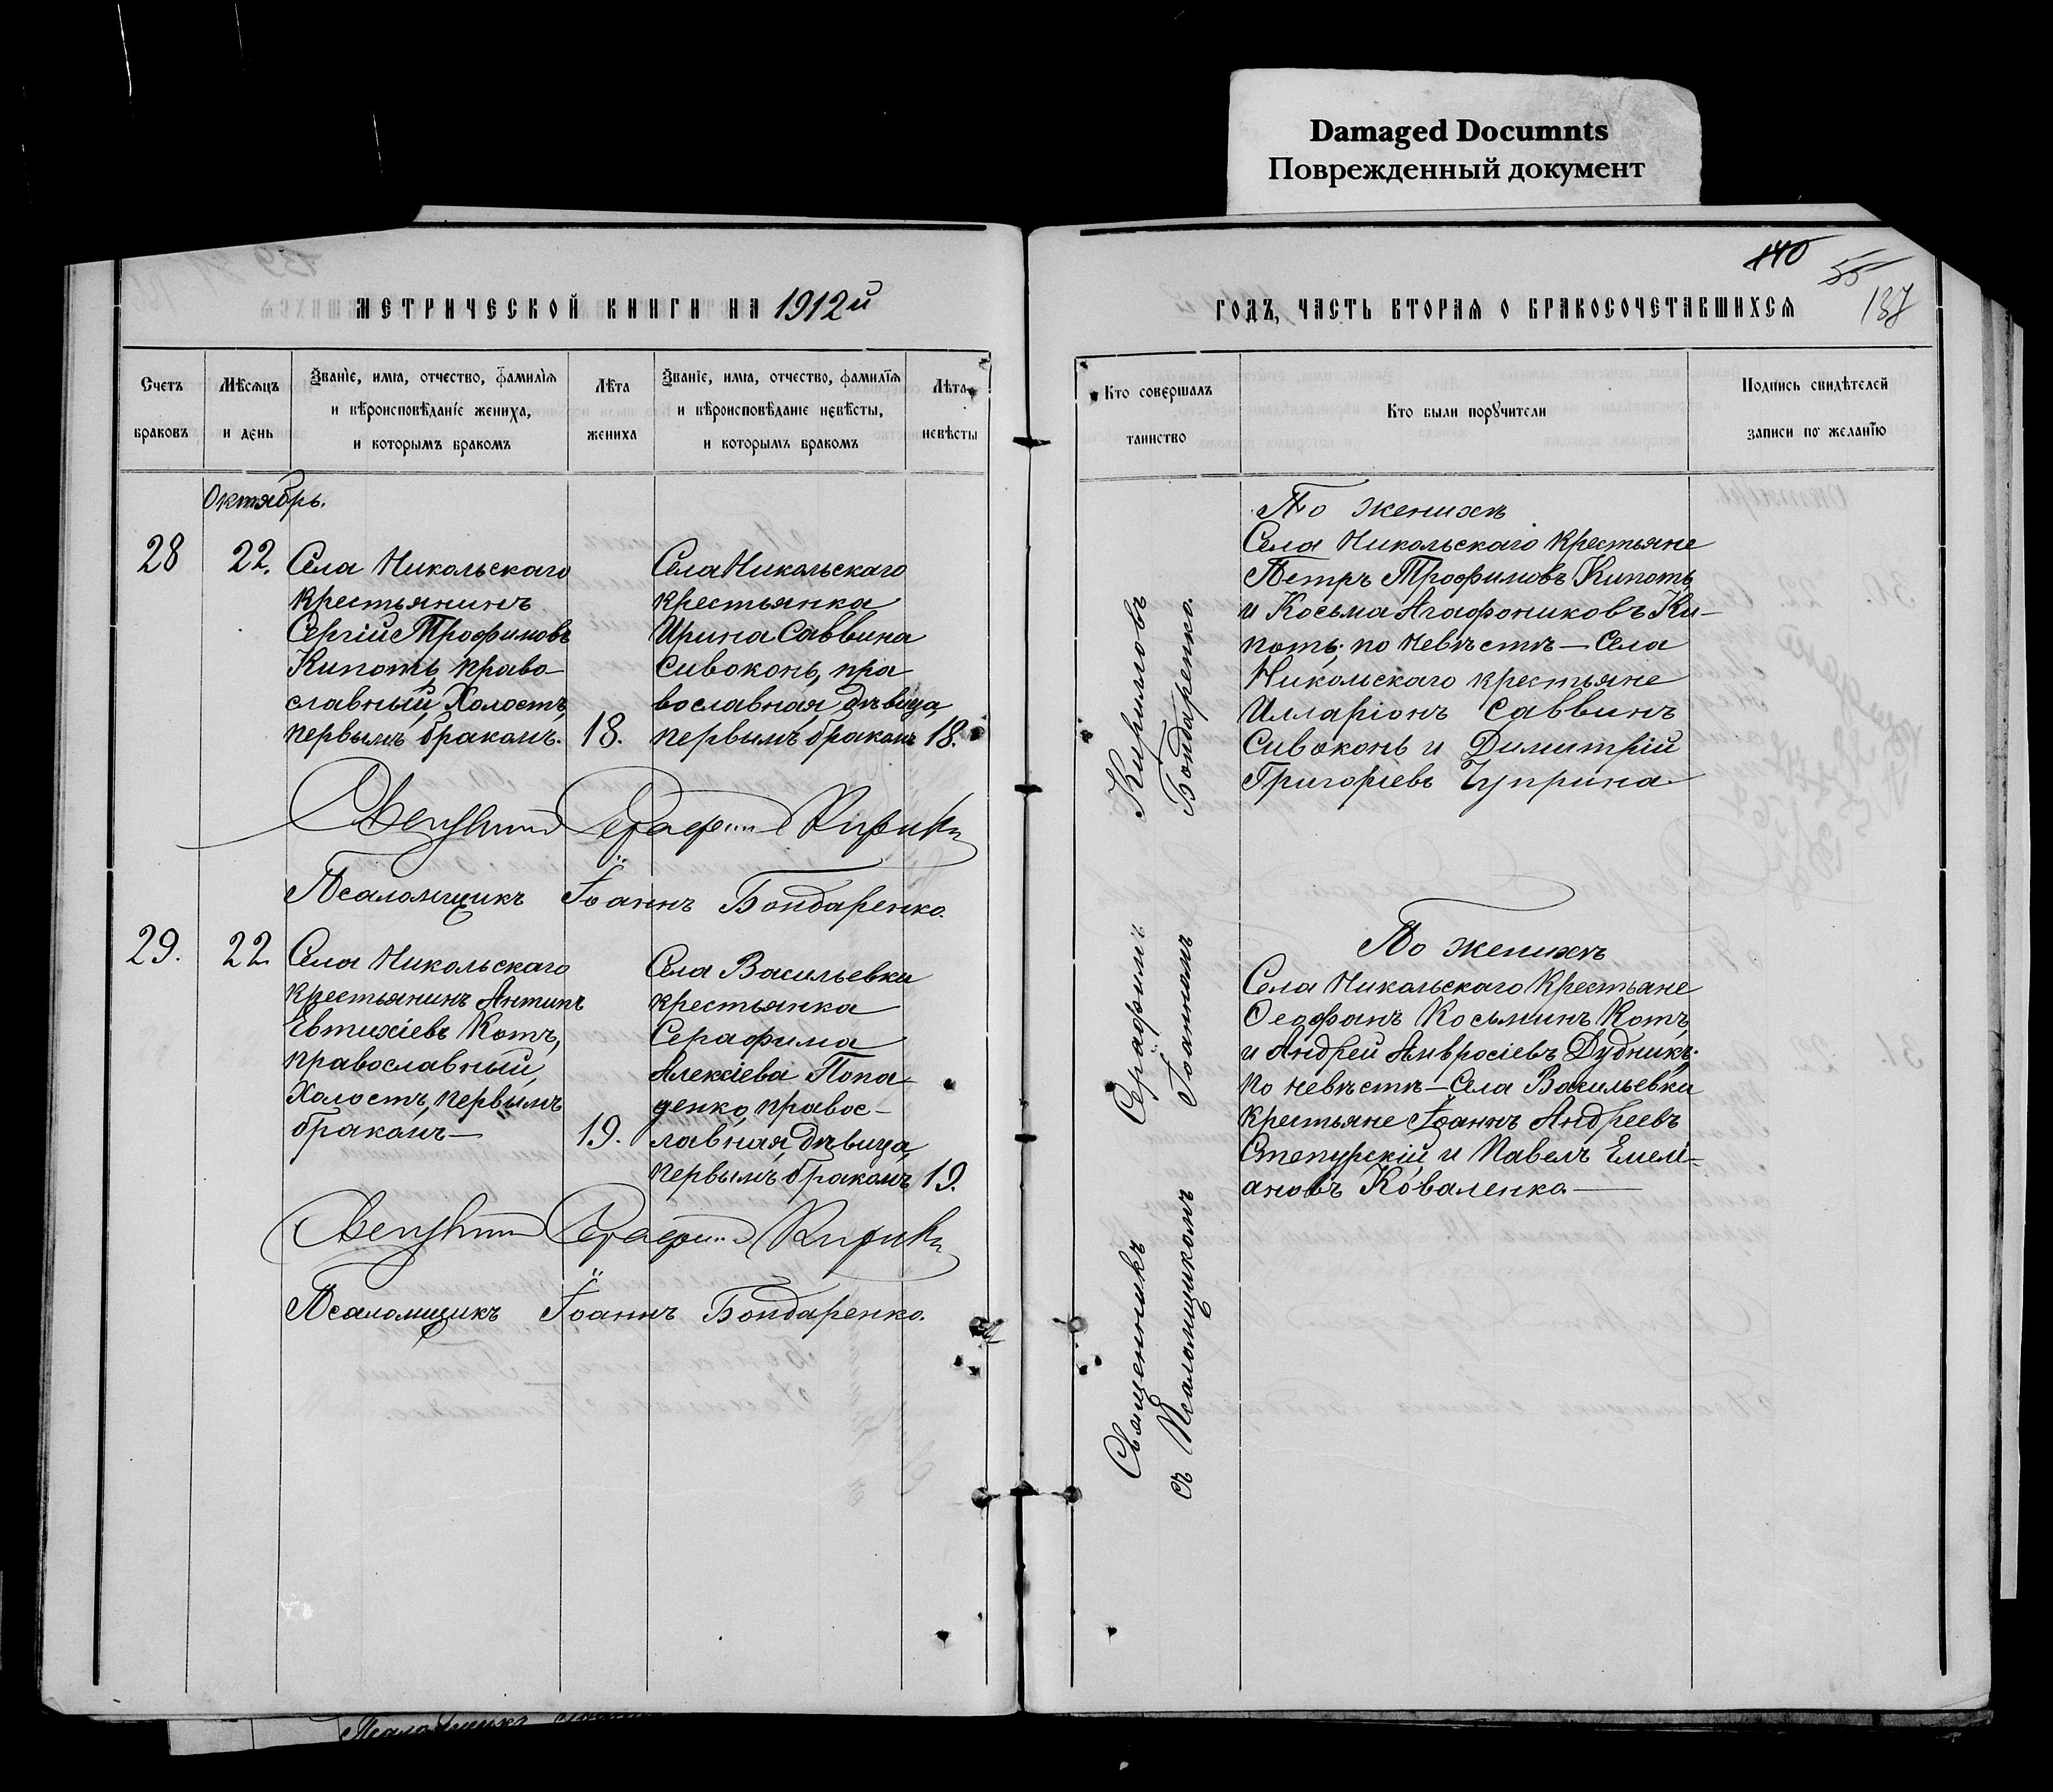 Damaged Documnts
Поврежденный документ
МЕТРИЧЕСКОЙ КНИГИ НА 1912й
Счетъ браковъ
Мѣсяцъ и день
Званіе, имя, отчество, фамилія и вѣроисповѣданіе жениха, и которымъ бракомъ
Лѣта жениха
Званіе, имя, отчество, фамилія и вѣроисповѣданіе невѣсты, и которымъ бракомъ
Лѣта невѣсты
Октябрь.
28
22.
Села Никольскаго
крестьянинъ
Сергій Трофимовъ
Кипоть, право-
славный, Холостъ,
первымъ бракомъ.
18.
Села Никольскаго
крестьянка
Ирина Саввина
Сивоконь, пра
вославная, дѣвица,
первымъ бракомъ
18.
Священникъ Серафимъ Кирилловъ
Псаломщикъ Іоаннъ Бондаренко.
29.
22
Села Никольскаго
крестьянинъ Антипъ
Евтихіевъ Котъ,
православный,
Холостъ, первымъ
бракомъ—
19.
Села Васильевки
крестьянка
Серафима
Алексіева Попа-
денко, правос-
лавная, дѣвица,
первымъ бракомъ
19.
Священникъ Серафимъ Кирилловъ
Псаломщикъ Іоаннъ Бондаренко.
140
55
137
ГОДЪ, ЧАСТЬ ВТОРАЯ О БРАКОСОЧЕТАВШИХСЯ
Кто совершалъ таинство
Кто были поручители
Подпись свидѣтелей записи по желанію
Священникъ Серафимъ Кирилловъ
съ Псаломщикомъ Іоанномъ Бондаренко.
По женихѣ
Села Никольскаго крестьяне
Петръ Трофимовъ Кипоть
и Косьма Агафониковъ Ки-
поть; по невѣстѣ — Села
Никольскаго крестьяне
Илларіонъ Саввинъ
Сивоконь и Димитрій
Григоріевъ Чуприна.
По женихѣ
Села Никольскаго крестьяне
Ѳеофанъ Косьминъ Котъ,
и Андрей Амвросіевъ Дудникъ;
по невѣстѣ — Села Васильевки
крестьяне Іоаннъ Андреевъ
Степурскій и Павелъ Емелі-
ановъ Коваленко. —
Псаломщикъ